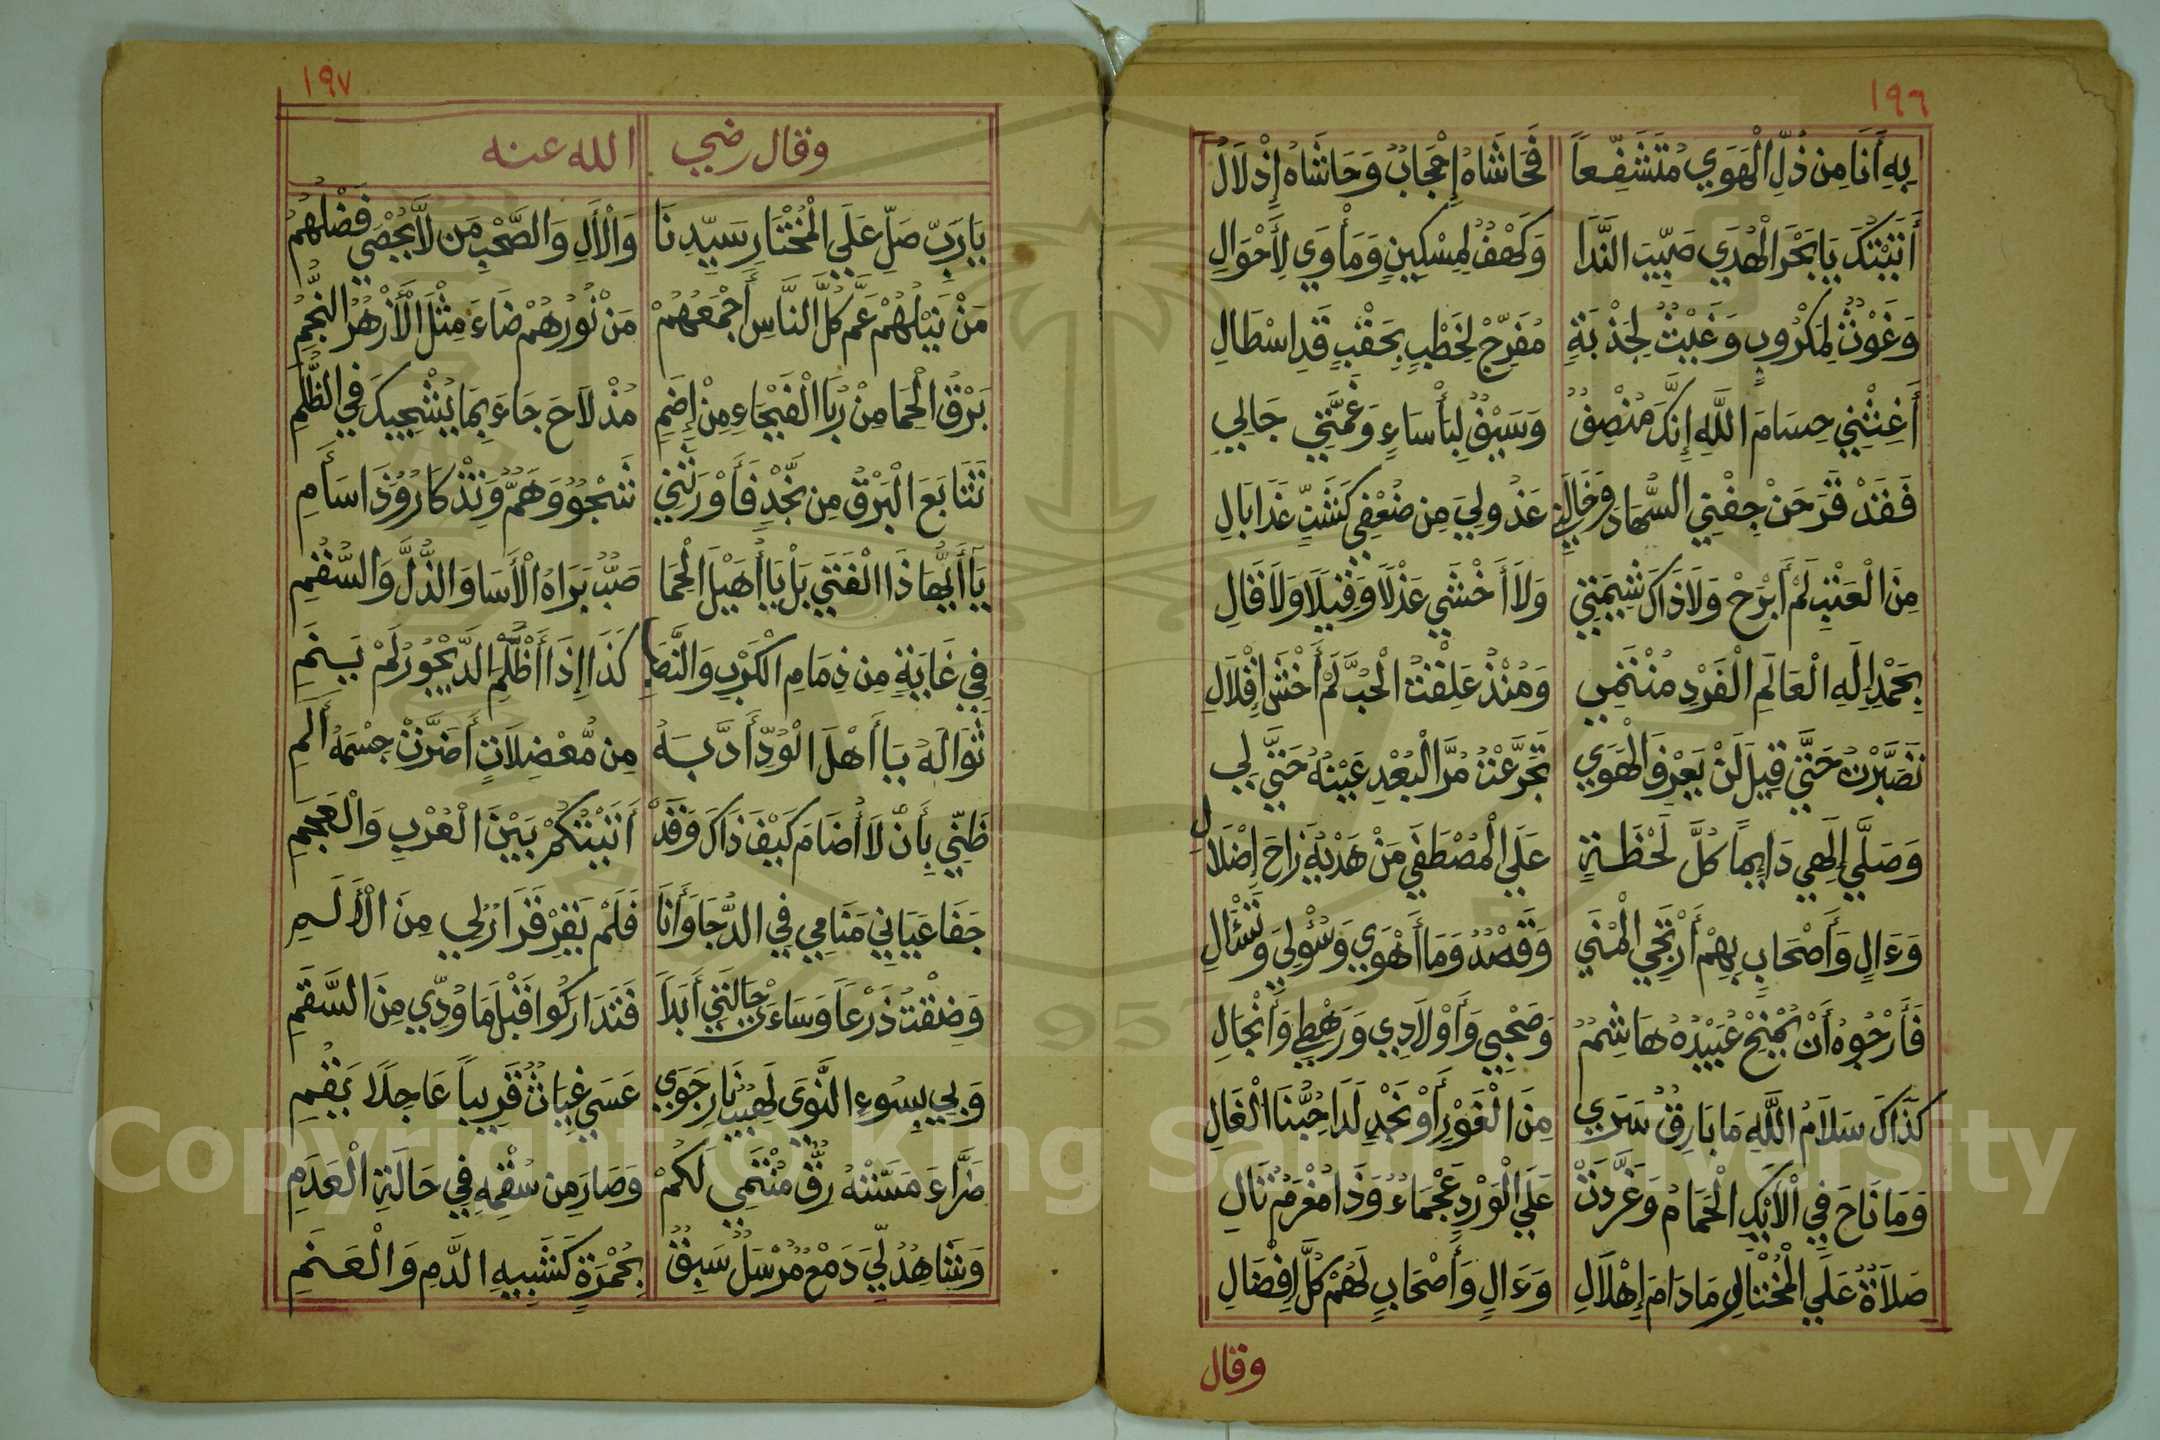 ١٩٦
بِهِ أَنَا مِن ذُلِّ الْهَوَي مُتَشَفِّعاً فَحَاشَاهُ إِعْجَابٌ وَحَاشَاهُ إِذْلاَلُ
أَتَيْتُكَ يَا بَحْرَ الْهُدَي صَيِّبَ النَّدَا وَكَهْفٌ لِمِسْكِينٍ وَمَأْوَي لِأَحْوَالِ
وَغَوْثٌ لِمَكْرُوبٍ وَغَيْثٌ لِجَذْبَةٍ مُفَرِّجْ لِخَطْبٍ بِحَقْبٍ قَدِ اسْطَالِ
أَغِثْنِي حِسَامَ اللَّهِ إِنَّكَ مُنْصِفٌ وَسَيْفٌ لِبَأْسَاءٍ وَغَمَّتِي جَالِي
فَقَدْ قَرَحَنْ جِفْنِي السُّهَادَ وَخَالِي عَذُولِيَ مِن ضُعْفِي كَشَنٍّ غَدَا بَالِ
مِنَ الْعَتْبِ لَمْ أَبْرَحْ وَلاَ ذَاكَ شِيمَتِي وَلاَ أَخْشَي عَذْلاً وَقِيلَا وَلاَ قَالِ
بِحَمْدِ إِلَهِ الْعَالَمِ الْفَرْدِ مُنْتَمِي وَمُنْذُ عَلِقْتُ الْحُبَّ لَمْ أَخْشَ إِقْلاَلِ
تَصَبَّرْتُ حَتَّي قِيلَ لَنْ يَعْرِفَ الْهَوَي تَجَرَّعْتُ مُرَّ الْبُعْدِ عَيْنُهُ حَتَّي لِي
وَصَلَّي إِلَهِي دَايِماً كُلَّ لَحْظَةٍ عَلَي الْمُصْطَفَي مَنْ هَدْيُهُ زَاحَ إِضْلاَلِ
وَءَالٍ وَأَصْحَابٍ بِهِمْ أَرْتَجِي الْمُنَي وَقَصْدُ وَمَا أَهْوَي وَسُؤْلِيَ وَتَسْآلِ
فَأَرْجُوهُ أَنْ يُمْنَحْ عُبَيْدُهُ هَاشِمٌ وَصَحْبِي وَأَوْلاَدِي وَرَهْطِي وَأَنْجَالِ
كَذَاكَ سَلاَمُ اللَّهِ مَا بَارِقٌ سَرَي مِنَ الْغَوْرِ أَوْ نَجْدٍ لَدَا حُبُّنَا الْغَالِ
وَمَا نَاحَ فِي الْأَيْكِ الْحَمَامُ وَغَرَّدَتْ عَلَي الْوَرْدِ عَجْمَاءُ وَذَا مُغْرَمٌ تَالِ
صَلاَةٌ عَلَي الْمُخْتَارِ مَادَامَ إِهْلاَلِ وَءَالٍ وَأَصْحَابٍ لَهُمْ كُلُّ إِفْضَالِ
وقال
١٩٧
وقال رضي الله عنه
يَارَبِّ صَلِّ عَلَي الْمُخْتَارِ سَيِّدِنَا وَالْأَلِ وَالصَّحْبِ مَن لاَّ يُحْصَي فَضْلُهُمُ
مَنْ نَيْلُهُمْ عَمَّ كُلَّ النَّاسِ أَجْمَعُهُمْ مَنْ نُورُهُمْ ضَاءَ مِثْلَ الْأَزْهُرُ النُّجُمِ
بَرْقُ الْحِمَا مِنْ رُبَا الْفَيْحَاءِ مِنْ إِضَمِ مُذْ لاَحَ جَاءَ بِمَا يُشْجِيكَ فِي الظُّلَمِ
تَتَابَعَ الْبَرْقُ مِن نَّجْدٍ فَأَوْرَثَنِي شَجْوٌ وَهَمٌّ وَتِذْكَارٌ وَذَا سَأَمِ
يَا أَيُّهَا ذَا الْفَتَي بَلْ يَا أُهَيْلَ الْحِمَا صَبٌّ بَرَاهُ الْأَسَا وَالذُّلُّ وَالسُّقُمِ
فِي غَايَةٍ مِن ذِمَامِ الْكَرْبِ وَالنَّصَبِ كَذَا إِذَا أَظْلَمَ الدَّيْجُورُ لَمْ يَنَمِ
ثَوَا لَهُ يَا أَهْلَ الْوُدِّ أَدَّ بَهُ مِن مُّعْضِلاَتٍ أَضَرَّتْ جِسْمَهُ أَلَمِ
ظَنِّي بِأَنْ لَا أُضَامَ كَيْفَ ذَاكَ وَقَدْ أَتَيْتُكُمْ بَيْنَ الْعُرْبِ وَالْعَجَمِ
جَفَا عَيَانِي مَنَامِي فِي الدُّجَا وَأَنَا فَلَمْ يَقِرْ قَرَارٌ لِي مِنَ الْأَلَمِ
وَضِقْتُ ذَرْعاً وَسَاءَتْ حَالَتِي أَبَداً فَتَدَارَكُوا قَبْلَ مَاوُدِّي مِنَ السَّقَمِ
وَبِي بِسُوءِ النَّوَى لَهِيبُ نَارِ جَوَي عَسَي غِيَاثٌ قَرِيباً عَاجِلاً بَقُمِ
ضَرَّاءَ مَسَّتْهُ رِقٌّ مُنْتَمِي لَكُمْ وَصَارَ مِن سُقْمِهِ فِي حَالَةِ الْعَدَمِ
وَشَاهِدُ لِيَ دَمْعٌ مُرْسَلٌ سَبِقٌ بِحُمْرَةٍ كَشَبِيهِ الدَّمِ وَالْعَنَمِ
Copyright © King Saud University